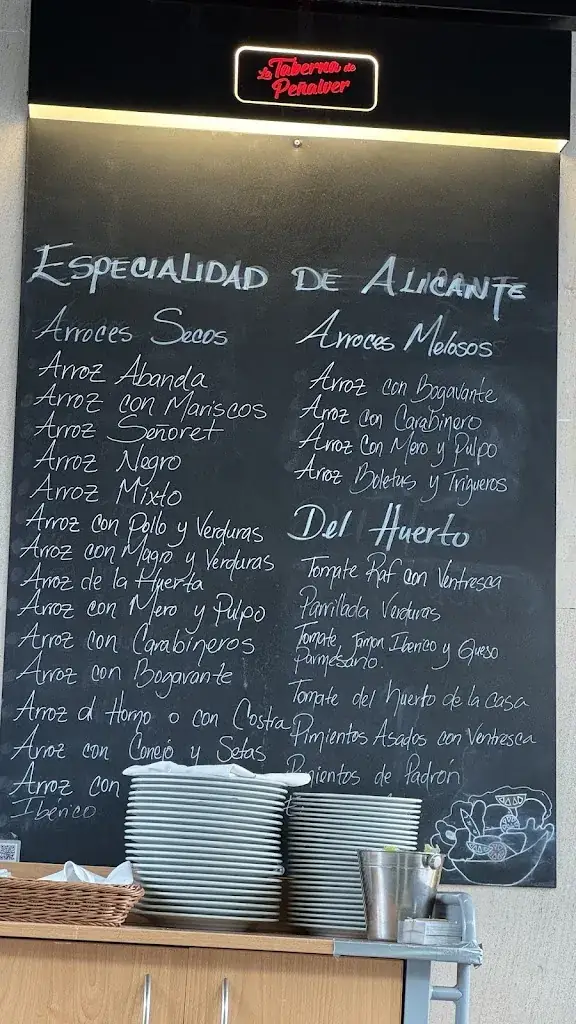 La Taberna de
Peñalver
ESPECIALIDAD DE ALICANTE
Arroces Secos
Arroz Abanda
Arroz con Mariscos
Arroz Señoret
Arroz Negro
Arroz Mixto
Arroz con Pollo y Verduras
Arroz con Magro y Verduras
Arroz de la Huerta
Arroz con Mero y Pulpo
Arroz con Carabineros
Arroz con Bogavante
Arroz al Horno o con Costra
Arroz con Conejo y Setas
Arroz con
Ibérico
Arroces Melosos
Arroz con Bogavante
Arroz con Carabinero
Arroz Con Mero y Pulpo
Arroz Boletus y Trigueros
Del Huerto
Tomate Raf con Ventresca
Parrillada Verduras
Tomate, Jamon Iberico y Queso
Parmesano.
Tomate del huerto de la casa
Pimientos Asados con Ventresca
Pimientos de Padrón